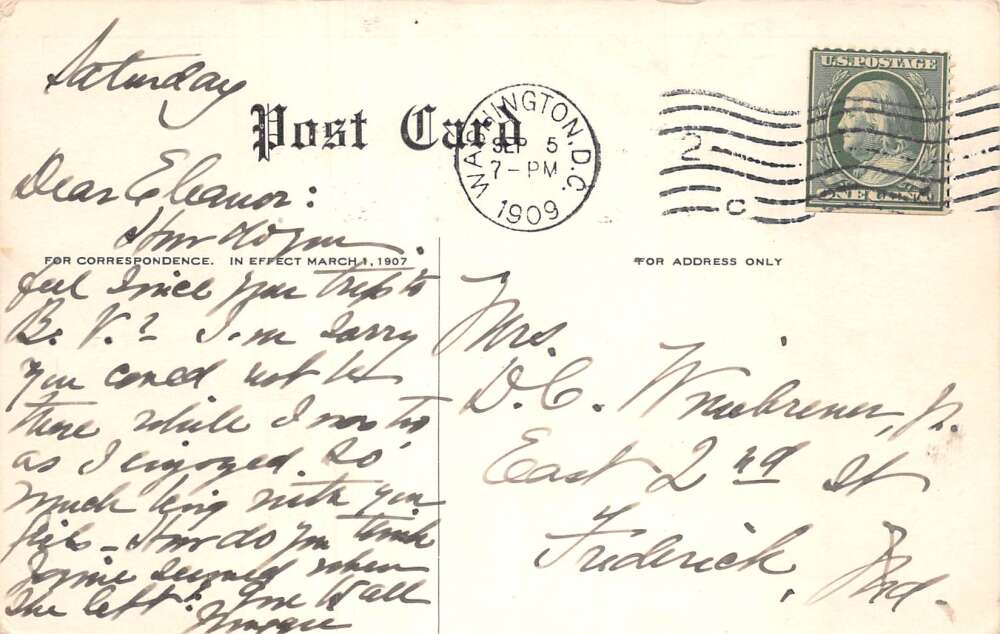 Saturday
Post Card
WASHINGTON, D.C.
SEP 5
7-PM
1909
2
C
U.S. POSTAGE
ONE CENT
Dear Eleanor:
How do you
FOR CORRESPONDENCE. IN EFFECT MARCH 1, 1907
FOR ADDRESS ONLY
feel since your trip to
B. V.? I'm sorry
you could not be
there while I was too
as I enjoyed so
much being with you
How do you think
seemed when
she left? Love to all
Mrs.
D. C. Jr.
East 2nd St
Frederick,
Md.